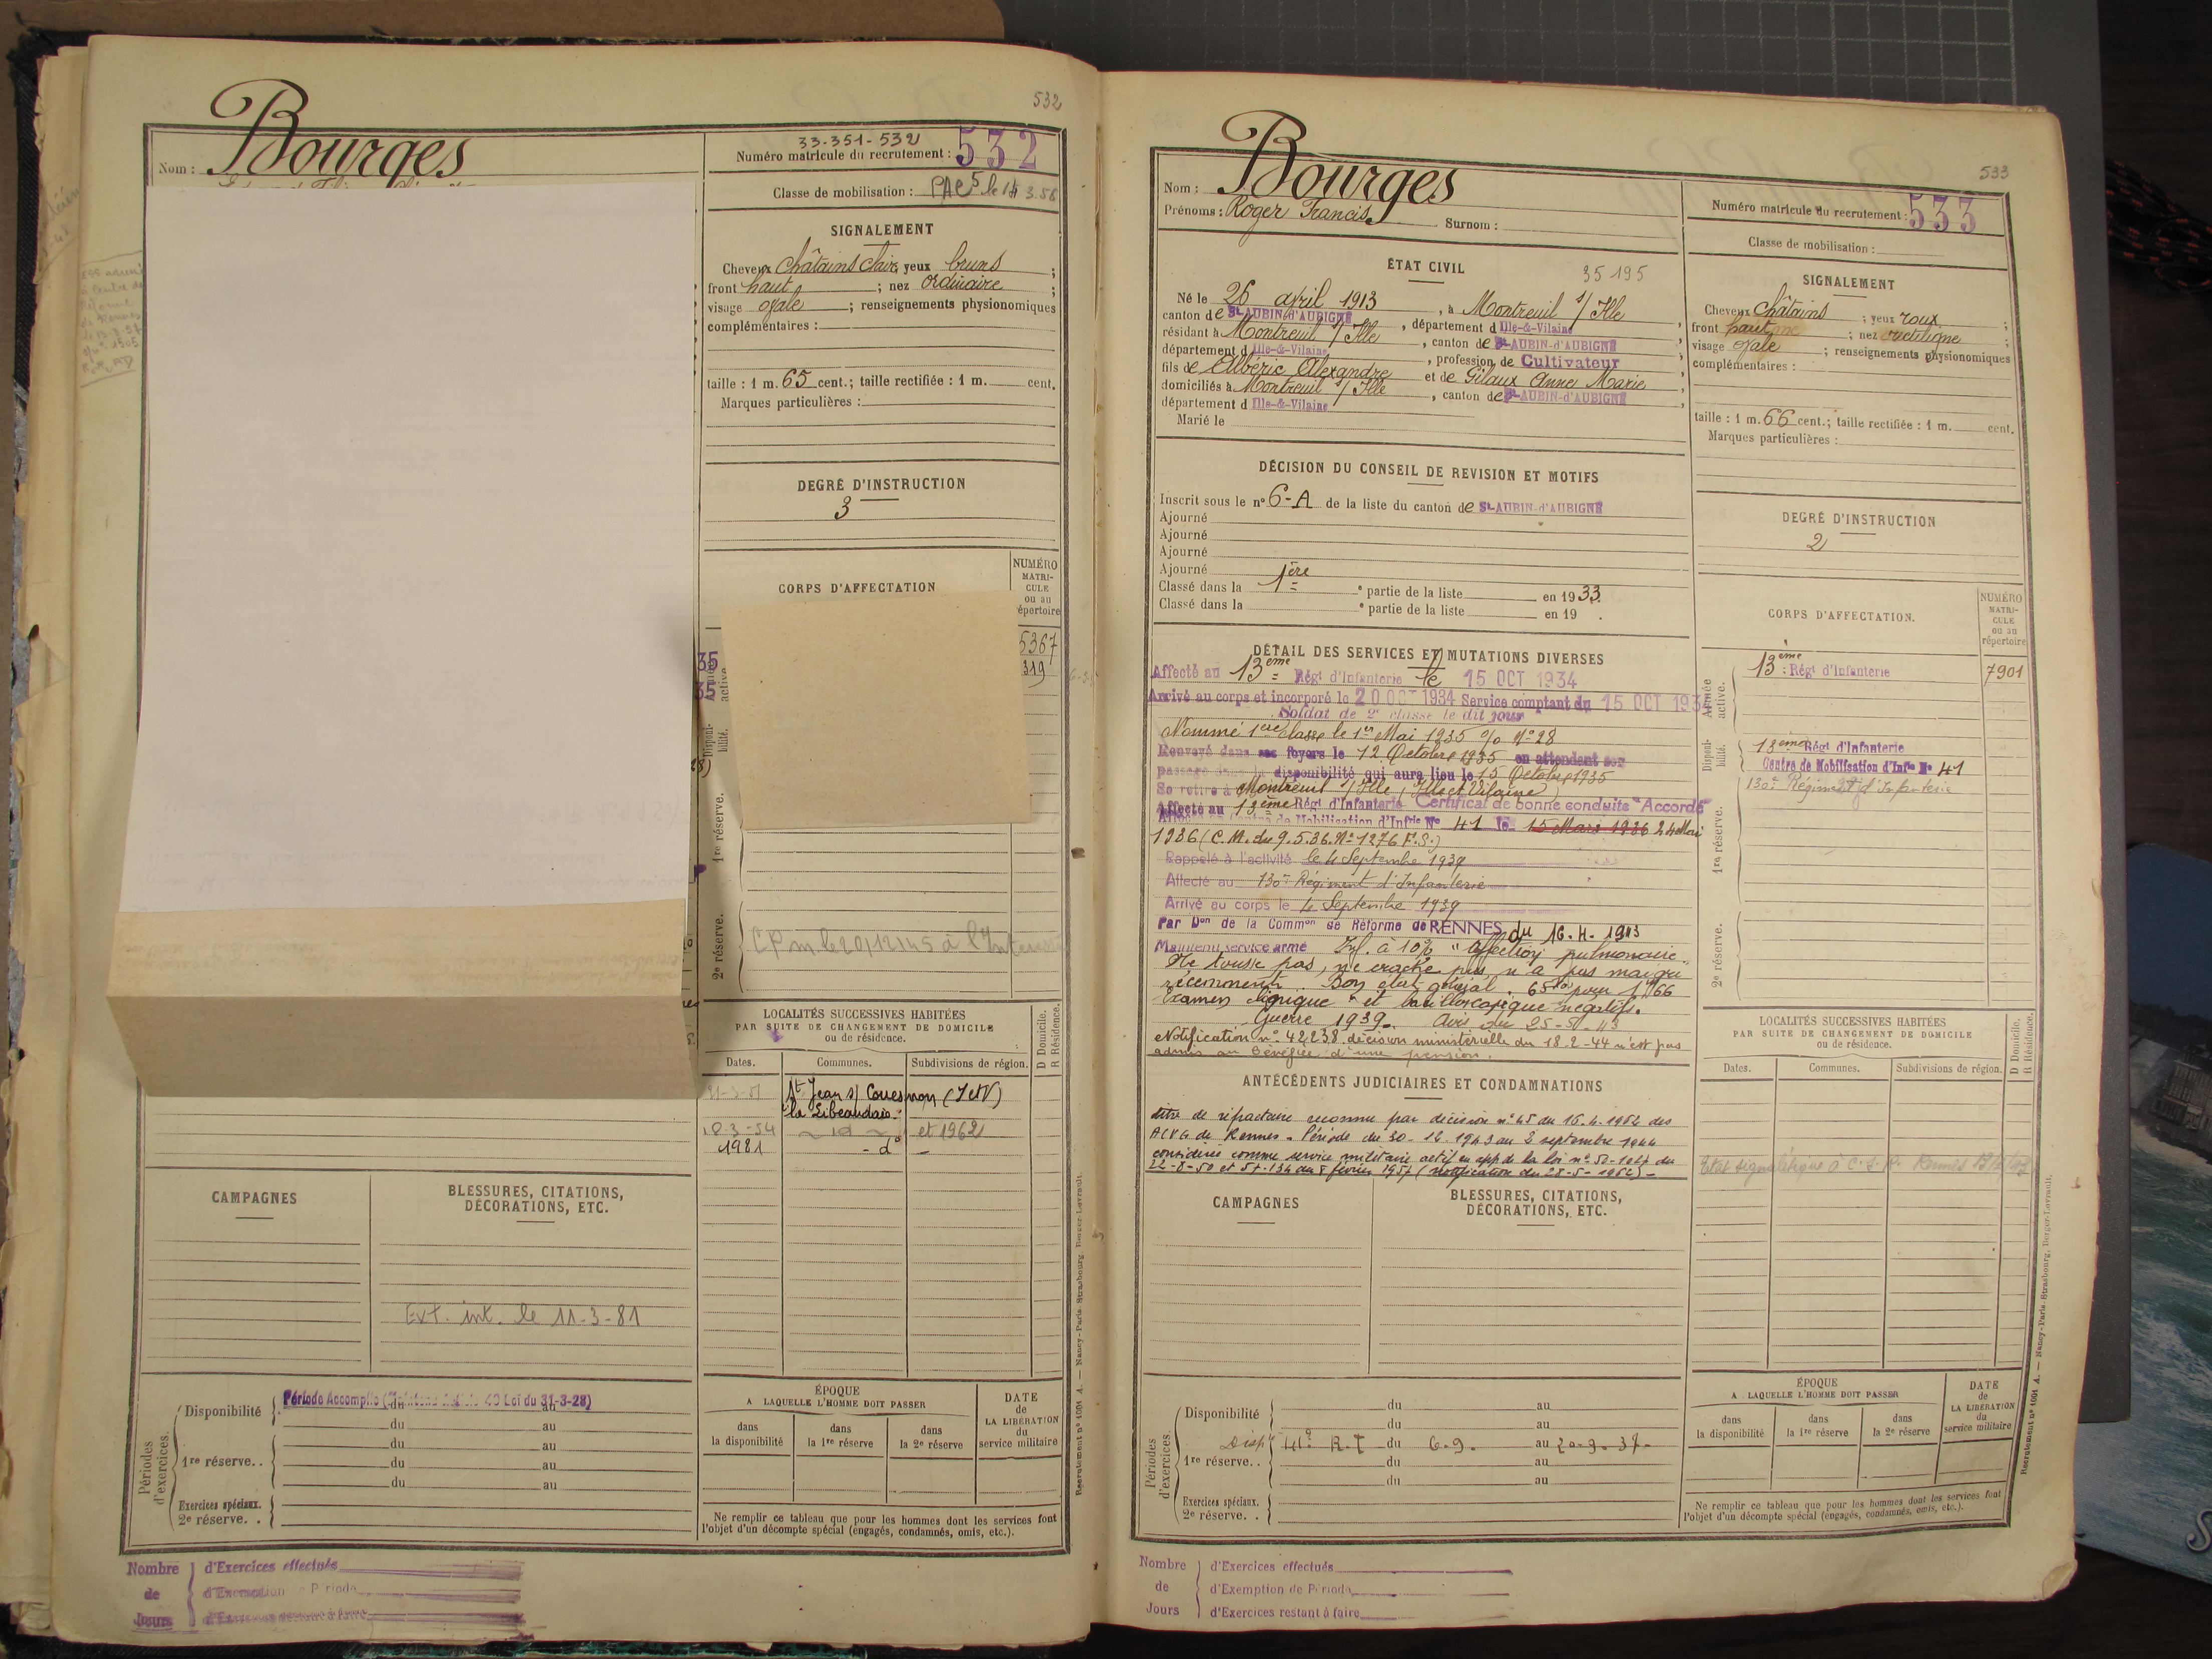 532
Bourges
Nom :
33-351-532
Numéro matricule du recrutement : 532
Classe de mobilisation : PAC5 le 14 3.58
SIGNALEMENT
Cheveux châtains clairs yeux bruns ;
front haut ; nez ordinaire ;
visage ovale ; renseignements physionomiques
complémentaires :
taille : 1 m. 65 cent.; taille rectifiée : 1 m. cent.
Marques particulières :
DEGRÉ D'INSTRUCTION
3
CORPS D'AFFECTATION
NUMÉRO
MATRI-
CULE
ou au
répertoire
5367
319
35
35
active.
Disponi-
bilité.
1re réserve.
2e réserve.
C.P.m. le 20/12/45 à l'
LOCALITÉS SUCCESSIVES HABITÉES
PAR SUITE DE CHANGEMENT DE DOMICILE
ou de résidence.
D Domicile.
R Résidence.
Dates. Communes. Subdivisions de région.
St Jean s/ Couesnon (I et V)
"la Libeaudais"
3-54 - id - et 1962
1981 - d° -
CAMPAGNES
BLESSURES, CITATIONS,
DÉCORATIONS, ETC.
Ext. int. le 11-3-81
Périodes
d'exercices.
Disponibilité
Période Accomplie 49 Loi du 31-3-28)
du au
du au
1re réserve. . du au
du au
Exercices spéciaux.
2e réserve. .
ÉPOQUE
A LAQUELLE L'HOMME DOIT PASSER
dans
la disponibilité
dans
la 1re réserve
dans
la 2e réserve
DATE
de
LA LIBÉRATION
du
service militaire
Ne remplir ce tableau que pour les hommes dont les services font
l'objet d'un décompte spécial (engagés, condamnés, omis, etc.).
Recrutement n° 1001 A. — Nancy-Paris-Strasbourg, Berger-Levrault.
Nombre
de
Jours
d'Exercices effectués
d'Exemption de Période
533
Nom : Bourges
Prénoms : Roger Francis Surnom :
Numéro matricule du recrutement : 533
Classe de mobilisation :
ÉTAT CIVIL
35 195
Né le 26 avril 1913, à Montreuil s/ Ille
canton de St-AUBIN-d'AUBIGNÉ, département d Ille-&-Vilaine
résidant à Montreuil s/ Ille, canton de St-AUBIN-d'AUBIGNÉ
département d Ille-&-Vilaine, profession de Cultivateur
fils de Albéric Alexandre et de Gilaux Anne Marie
domiciliés à Montreuil s/ Ille, canton de St-AUBIN-d'AUBIGNÉ
département d Ille-&-Vilaine
Marié le
SIGNALEMENT
Cheveux châtains ; yeux roux ;
front haut ; nez rectiligne ;
visage ovale ; renseignements physionomiques
complémentaires :
taille : 1 m. 66 cent.; taille rectifiée : 1 m. cent.
Marques particulières :
DÉCISION DU CONSEIL DE REVISION ET MOTIFS
Inscrit sous le n° 6-A de la liste du canton de St-AUBIN-d'AUBIGNÉ
Ajourné
Ajourné
Ajourné
Ajourné
Classé dans la 1ère e partie de la liste en 1933.
Classé dans la e partie de la liste en 19 .
DEGRÉ D'INSTRUCTION
2
DÉTAIL DES SERVICES ET MUTATIONS DIVERSES
Affecté au 13ème Régt d'Infanterie le 15 OCT 1934
Arrivé au corps et incorporé le 20 OCT 1934 Service comptant du 15 OCT 1934
Soldat de 2e classe le dit jour
Nommé 1ère classe le 1er Mai 1935 % N° 28
Renvoyé dans ses foyers le 12 Octobre 1935 en attendant son
passage dans la disponibilité qui aura lieu le 15 Octobre 1935
Se retire à Montreuil s/ Ille (Ille et Vilaine)
Affecté au 13ème Régt d'Infanterie Certificat de bonne conduite "Accordé"
Affecté au Centre de Mobilisation d'Infrie N° 41 le 15 Mars 1936 24 Mai
1936 (C.M. du 9.5.36. N° 1276 F.S.)
Rappelé à l'activité le 4 Septembre 1939
Affecté au 130e Régiment d'Infanterie
Arrivé au corps le 4 Septembre 1939
Par Don de la Common de Réforme de RENNES du 16.4.1943
Maintenu service armé Inf. à 10% "affection pulmonaire"
Ne tousse pas, ne crache pas n'a pas maigri
récemment. Bon état général. 65 kgs pour 1m66
Examen et bacilloscopique négatifs.
Guerre 1939. Avis du 25-5-43
Notification n° 42238 décision ministérielle du 18.2-44 n'est pas
admis au bénéfice d'une pension.
CORPS D'AFFECTATION.
NUMÉRO
MATRI-
CULE
ou au
répertoire
Armée
active.
13ème Régt d'Infanterie 7901
Disponi-
bilité.
13ème Régt d'Infanterie
Centre de Mobilisation d'Infie N° 41
130e Régiment d'Infanterie
1re réserve.
2e réserve.
ANTÉCÉDENTS JUDICIAIRES ET CONDAMNATIONS
titre de réfractaire reconnu par décision n° 45 du 16.4.1962 des
ACVG de Rennes. Période du 30-12-1943 au 2 septembre 1944
considérée comme service militaire actif en app de la loi n° 50-1027 du
22-8-50 et 57-134 du 8 février 1957 (notification du 28-5-1962) -
LOCALITÉS SUCCESSIVES HABITÉES
PAR SUITE DE CHANGEMENT DE DOMICILE
ou de résidence.
D Domicile.
R Résidence.
Dates. Communes. Subdivisions de région.
Etat signalétique à C.S.R. Rennes
CAMPAGNES
BLESSURES, CITATIONS,
DÉCORATIONS, ETC.
Périodes
d'exercices.
Disponibilité du au
du au
Disp 41e R.I du 6-9- au 20-9-37-
1re réserve. . du au
du au
Exercices spéciaux.
2e réserve. .
ÉPOQUE
A LAQUELLE L'HOMME DOIT PASSER
dans
la disponibilité
dans
la 1re réserve
dans
la 2e réserve
DATE
de
LA LIBÉRATION
du
service militaire
Ne remplir ce tableau que pour les hommes dont les services font
l'objet d'un décompte spécial (engagés, condamnés, omis, etc.).
Recrutement n° 1001 A. — Nancy-Paris-Strasbourg, Berger-Levrault.
Nombre
de
Jours
d'Exercices effectués
d'Exemption de Période
d'Exercices restant à faire